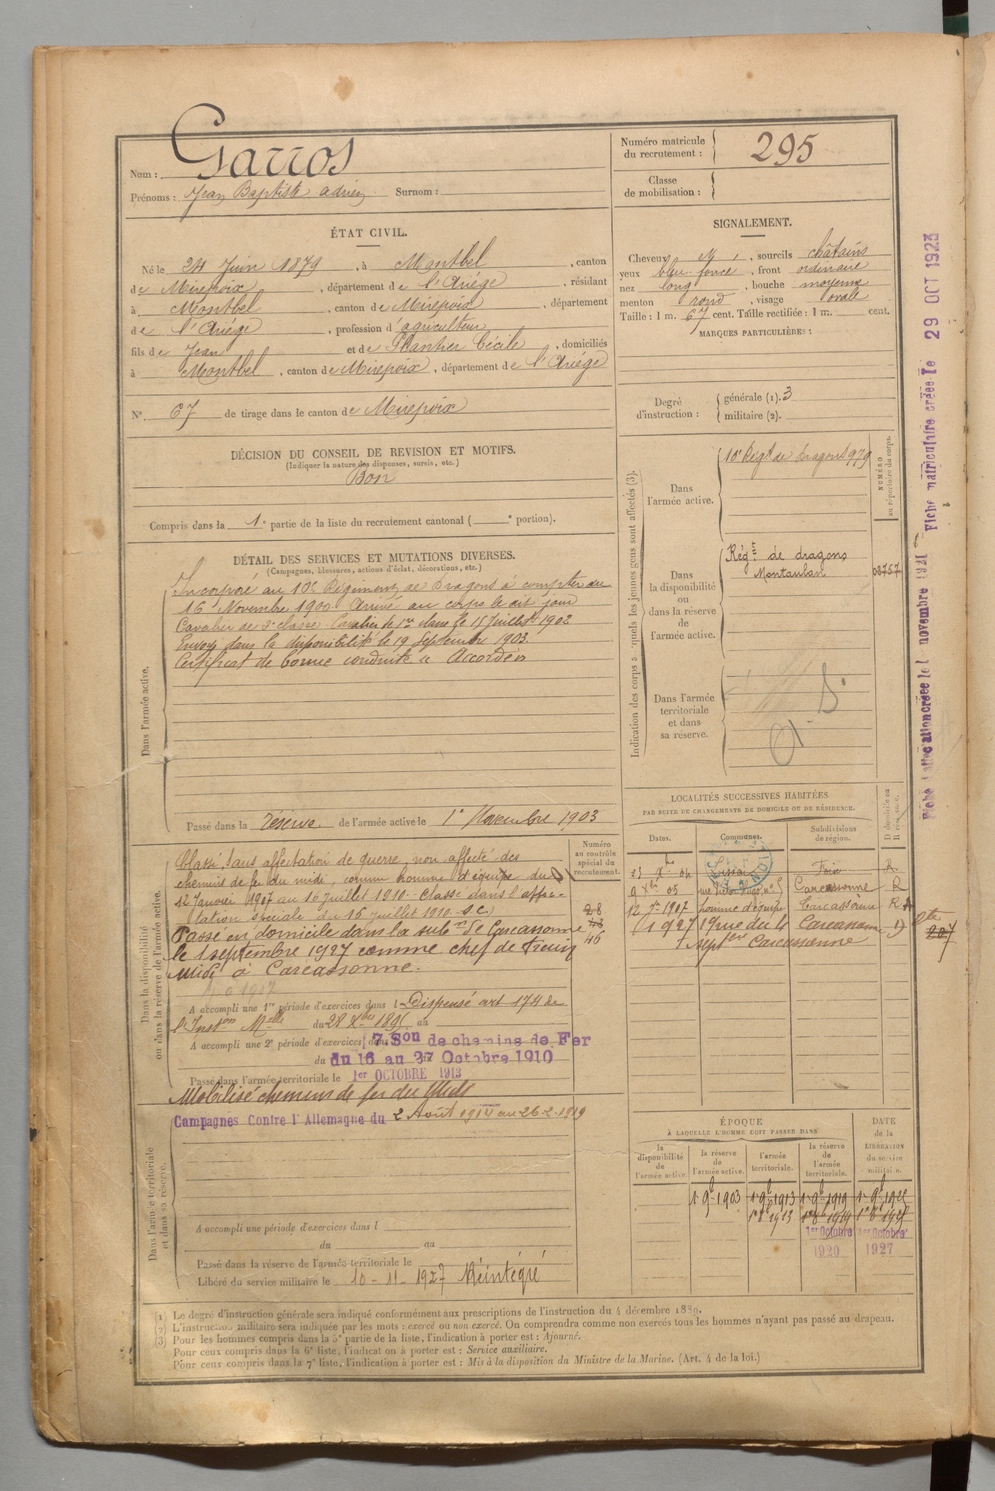 Nom : Garros
Prénoms : Jean Baptiste Adrien Surnom :
Numéro matricule du recrutement : 295
Classe de mobilisation :
ÉTAT CIVIL.
Né le 24 Juin 1879, à Montbel, canton
de Mirepoix, département de l'Ariège, résidant
à Montbel, canton de Mirepoix, département
de l'Ariège, profession d'agriculteur
fils de Jean et de Plantier Cécile, domiciliés
à Montbel, canton de Mirepoix, département de l'Ariège
N° 67 de tirage dans le canton de Mirepoix
SIGNALEMENT.
Cheveux, sourcils châtains
yeux bleu foncé, front ordinaire
nez long, bouche moyenne
menton rond, visage ovale
Taille : 1 m. 67 cent. Taille rectifiée : 1 m. cent.
MARQUES PARTICULIÈRES :
Degré d'instruction : générale (1). 3
militaire (2).
DÉCISION DU CONSEIL DE REVISION ET MOTIFS.
(Indiquer la nature des dispenses, sursis, etc.)
Bon
Compris dans la 1e partie de la liste du recrutement cantonal ( e portion).
DÉTAIL DES SERVICES ET MUTATIONS DIVERSES.
(Campagnes, blessures, actions d'éclat, décorations, etc.)
Dans l'armée active.
Incorporé au 10e Régiment de Dragons à compter du
16 Novembre 1900. Arrivé au corps le dit jour
Cavalier de 2e classe. Cavalier de 1re classe le 15 Juillet 1902
Envoyé dans la disponibilité le 19 Septembre 1903.
Certificat de bonne conduite « Accordé »
Passé dans la réserve de l'armée active le 1er Novembre 1903
Indication des corps auxquels les jeunes gens sont affectés (3).
NUMÉRO au répertoire du corps.
Dans l'armée active.
10e Régt de dragons 979
Dans la disponibilité ou dans la réserve de l'armée active.
Régnt de dragons
Montauban 08757
Dans l'armée territoriale et dans sa réserve.
LOCALITÉS SUCCESSIVES HABITÉES
PAR SUITE DE CHANGEMENTS DE DOMICILE OU DE RÉSIDENCE.
Dates. Communes. Subdivisions de région. D domicile ou R résidence.
Foix R
9 Xbre 05 Carcassonne R
12 1907 homme d'équipe Carcassonne R
1927 19 rue du 4 Carcassonne D
Septbre Carcassonne
207
Dans la disponibilité ou dans la réserve de l'armée active.
Numéro au contrôle spécial du recrutement.
Classé sans affectation de guerre, non affecté des
chemins de fer du midi, comme homme d'équipe du
12 Janvier 1907 au 15 juillet 1910. Classé dans l'affec-
tation spéciale du 15 juillet 1910. S.C.
Passé en domicile dans la subdon de Carcassonne
le 1 septembre 1927 comme chef de
Midi à Carcassonne.
A accompli une 1re période d'exercices dans l Dispensé art 174 de
l'Instron Melle du 28 Xbre 1895 au
A accompli une 2e période d'exercices dans 7 Son de chemins de Fer
du 16 au 27 Octobre 1910
Passé dans l'armée territoriale le 1er OCTOBRE 1913
Mobilisé chemins de fer du Midi
Dans l'armée territoriale et dans sa réserve.
Campagnes Contre l'Allemagne du 2 Août 1914 au 26-2-1919
A accompli une période d'exercices dans l
du au
Passé dans la réserve de l'armée territoriale le
Libéré du service militaire le 10-11-1927 Réintégré
ÉPOQUE
À LAQUELLE L'HOMME DOIT PASSER DANS
la disponibilité de l'armée active. la réserve de l'armée active. l'armée territoriale. la réserve de l'armée territoriale. DATE de la LIBÉRATION du service militaire.
1er 9bre 1903 1er 9bre 1913 1er 9bre 1919
1er 8bre 1913 1er 8bre 1919
1er Octobre 1920 1er Octobre 1927
Fiche matriculaire créée le 29 OCT 1923
Fiche d'affectation créée le 1 novembre 1921
(1) Le degré d'instruction générale sera indiqué conformément aux prescriptions de l'instruction du 4 décembre 1889.
(2) L'instruction militaire sera indiquée par les mots : exercé ou non exercé. On comprendra comme non exercés tous les hommes n'ayant pas passé au drapeau.
(3) Pour les hommes compris dans la 5e partie de la liste, l'indication à porter est : Ajourné.
Pour ceux compris dans la 6e liste, l'indication à porter est : Service auxiliaire.
Pour ceux compris dans la 7e liste, l'indication à porter est : Mis à la disposition du Ministre de la Marine. (Art. 4 de la loi.)